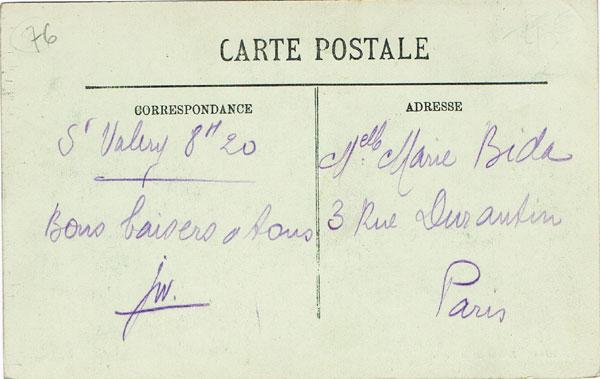 76
CARTE POSTALE
CORRESPONDANCE
St Valery 8H20
Bons baisers à tous
jw.
ADRESSE
Melle Marie Bida
3 Rue Durantin
Paris